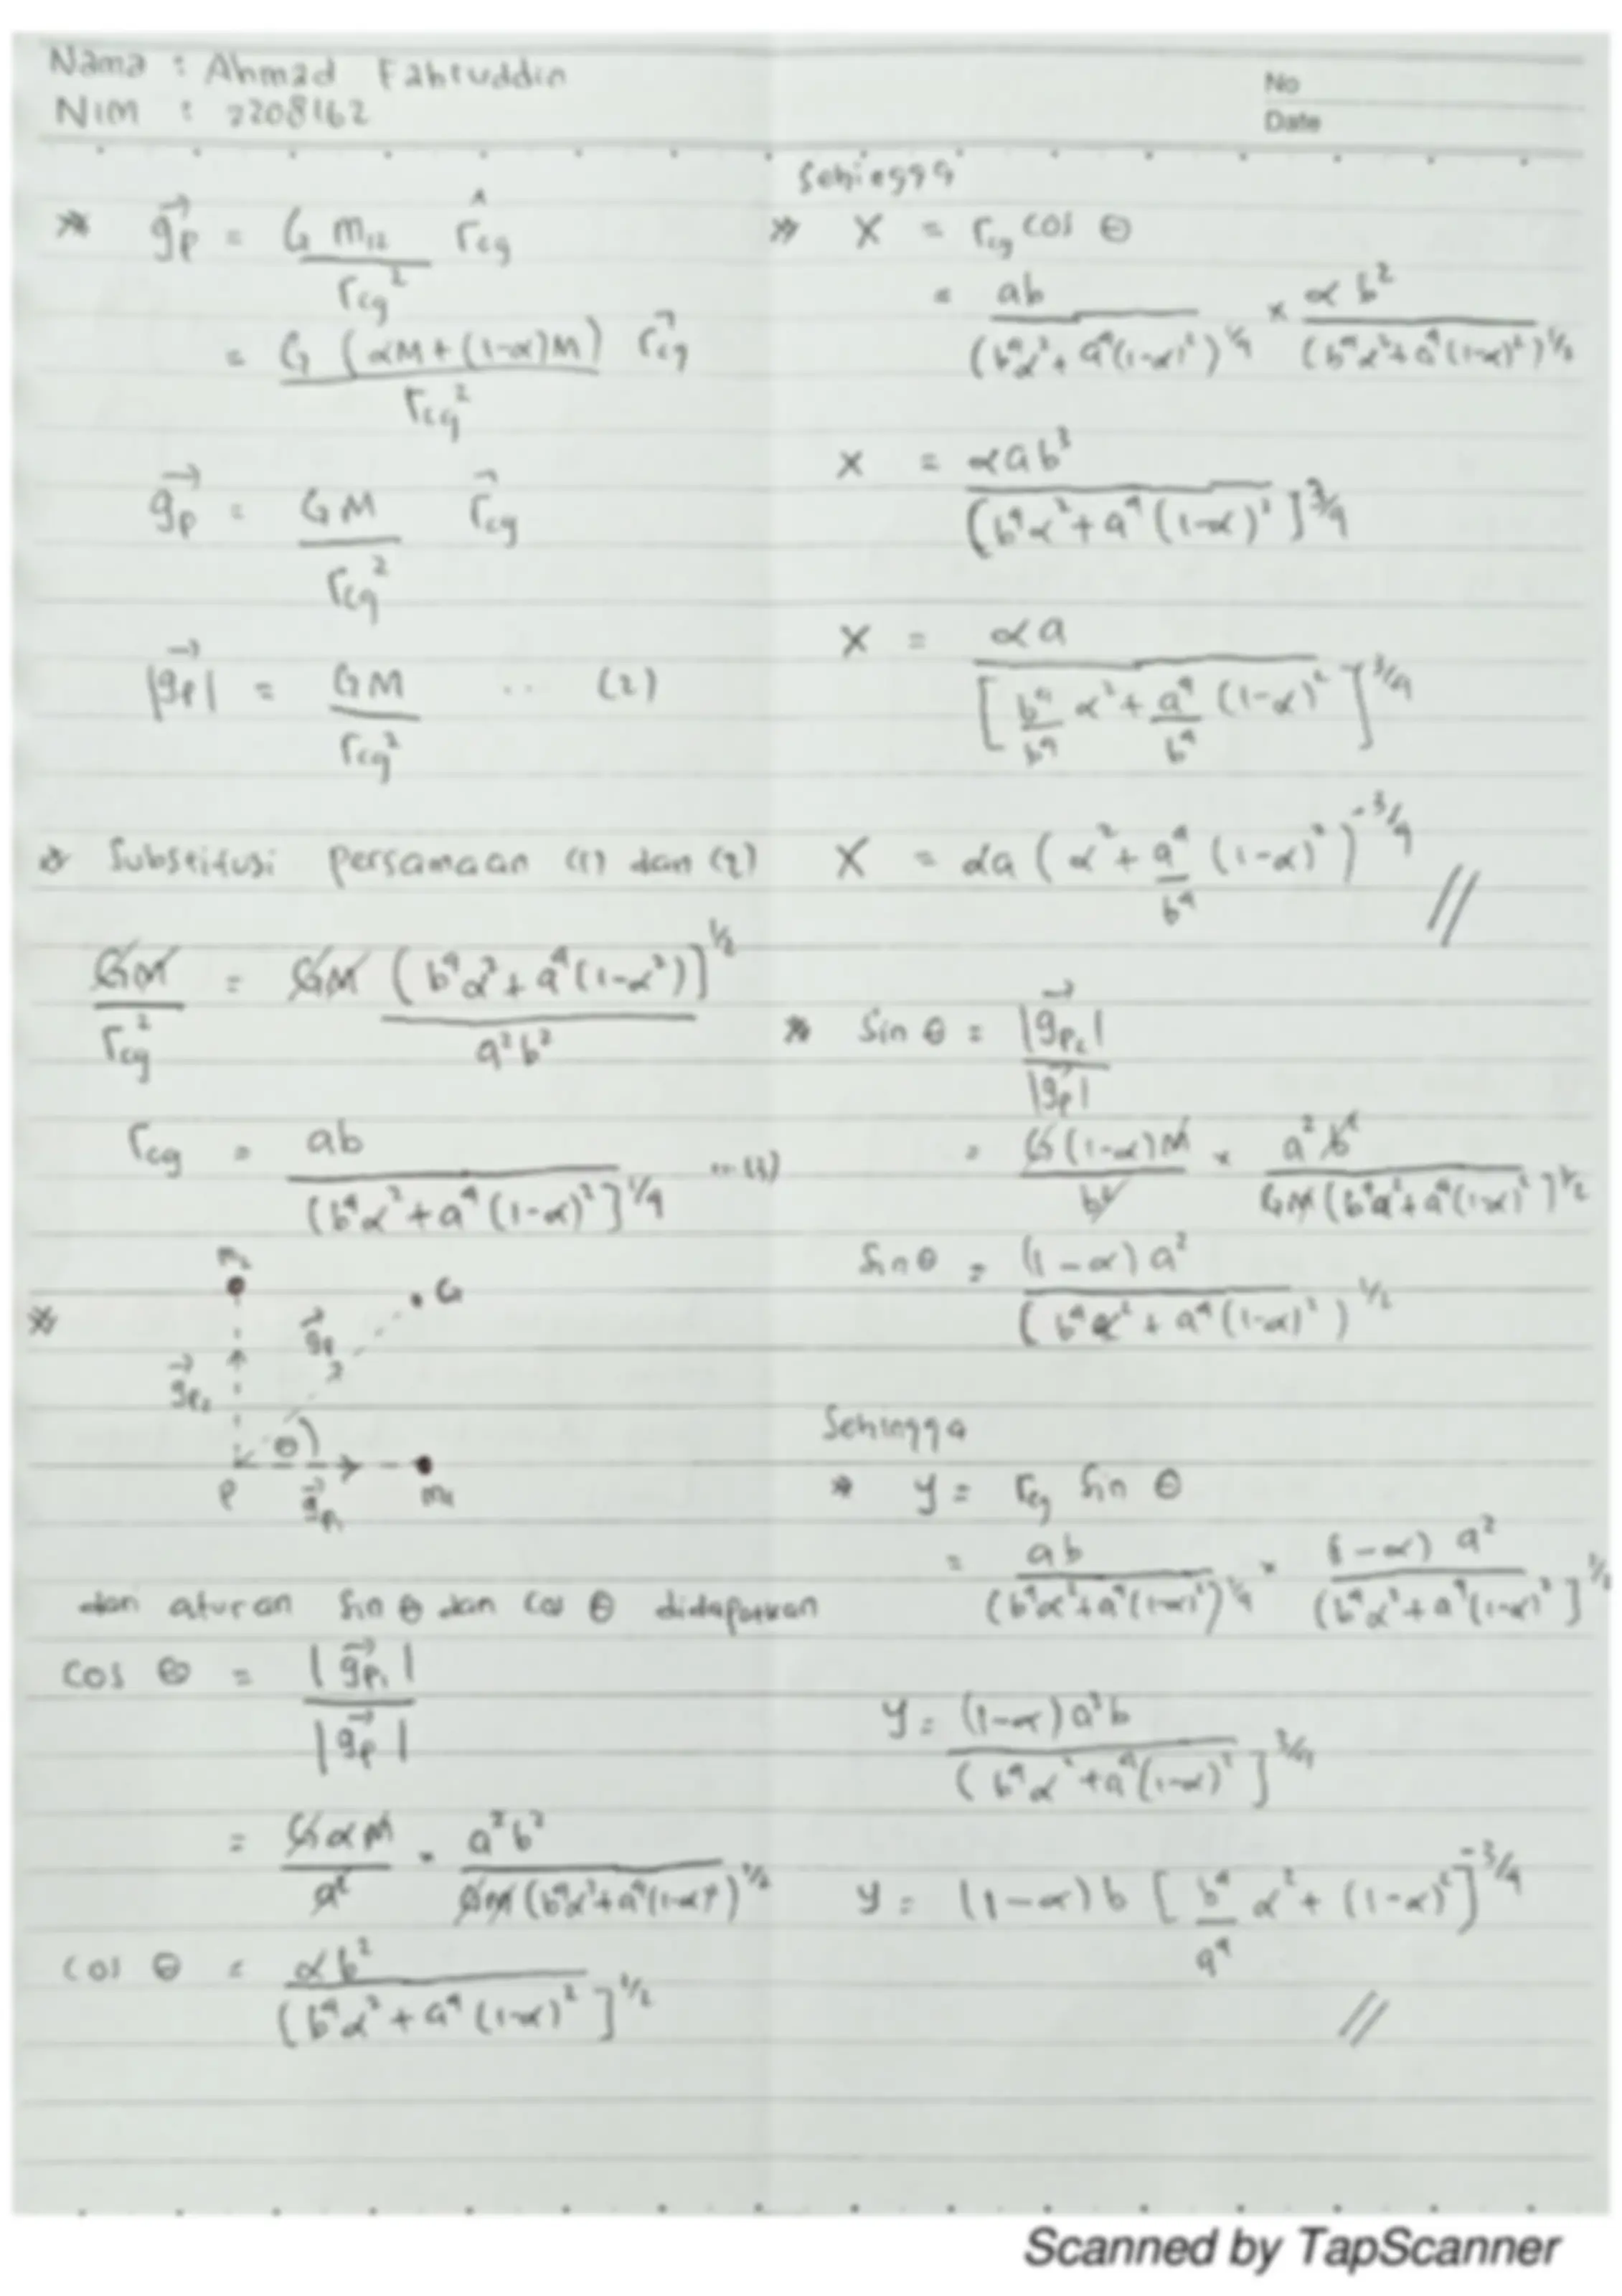 Nama : Ahmad Fahruddin
NIM : 2208162
No
Date
* \vec{g_p} = \frac{G m_{12}}{r_{cg}^2} \hat{r}_{cg}
= \frac{G (αM + (1-α)M)}{r_{cg}^2} \vec{r_{cg}}
\vec{g_p} = \frac{GM}{r_{cg}^2} \vec{r_{cg}}
|\vec{g_p}| = \frac{GM}{r_{cg}^2} .. (2)
* Substitusi persamaan (1) dan (2)
\frac{GM}{r_{cg}^2} = \frac{GM (b^4 α^2 + a^4 (1-α^2)]^{1/2}}{a^2 b^2}
r_{cg} = \frac{ab}{(b^4 α^2 + a^4 (1-α)^2]^{1/4}} ...(3)
*
m_2
G
\vec{g_p}
\vec{g_{p_2}}
θ
P
\vec{g_{p_1}}
m_1
dan aturan sin θ dan cos θ didapatkan
cos θ = \frac{|\vec{g_{p_1}}|}{|\vec{g_p}|}
= \frac{G α M}{a^2} · \frac{a^2 b^2}{GM (b^4 α^2 + a^4 (1-α)^2)^{1/2}}
cos θ = \frac{α b^2}{(b^4 α^2 + a^4 (1-α)^2]^{1/2}}
Sehingga
* X = r_{cg} cos θ
= \frac{ab}{(b^4 α^2 + a^4 (1-α)^2)^{1/4}} × \frac{α b^2}{(b^4 α^2 + a^4 (1-α)^2)^{1/2}}
X = \frac{α a b^3}{[b^4 α^2 + a^4 (1-α)^2]^{3/4}}
X = \frac{α a}{[\frac{b^4}{b^4} α^2 + \frac{a^4}{b^4} (1-α)^2]^{3/4}}
X = αa (α^2 + \frac{a^4}{b^4} (1-α)^2)^{-3/4} //
* Sin θ = \frac{|\vec{g_{p_2}}|}{|\vec{g_p}|}
= \frac{G (1-α) M}{b^2} × \frac{a^2 b^2}{GM (b^4 α^2 + a^4 (1-α)^2]^{1/2}}
Sin θ = \frac{(1-α) a^2}{(b^4 α^2 + a^4 (1-α)^2)^{1/2}}
Sehingga
* y = r_{cg} Sin θ
= \frac{ab}{(b^4 α^2 + a^4 (1-α)^2)^{1/4}} × \frac{(1-α) a^2}{(b^4 α^2 + a^4 (1-α)^2]^{1/2}}
y = \frac{(1-α) a^3 b}{(b^4 α^2 + a^4 (1-α)^2]^{3/4}}
y = (1-α) b [\frac{b^4}{a^4} α^2 + (1-α)^2]^{-3/4}
//
Scanned by TapScanner